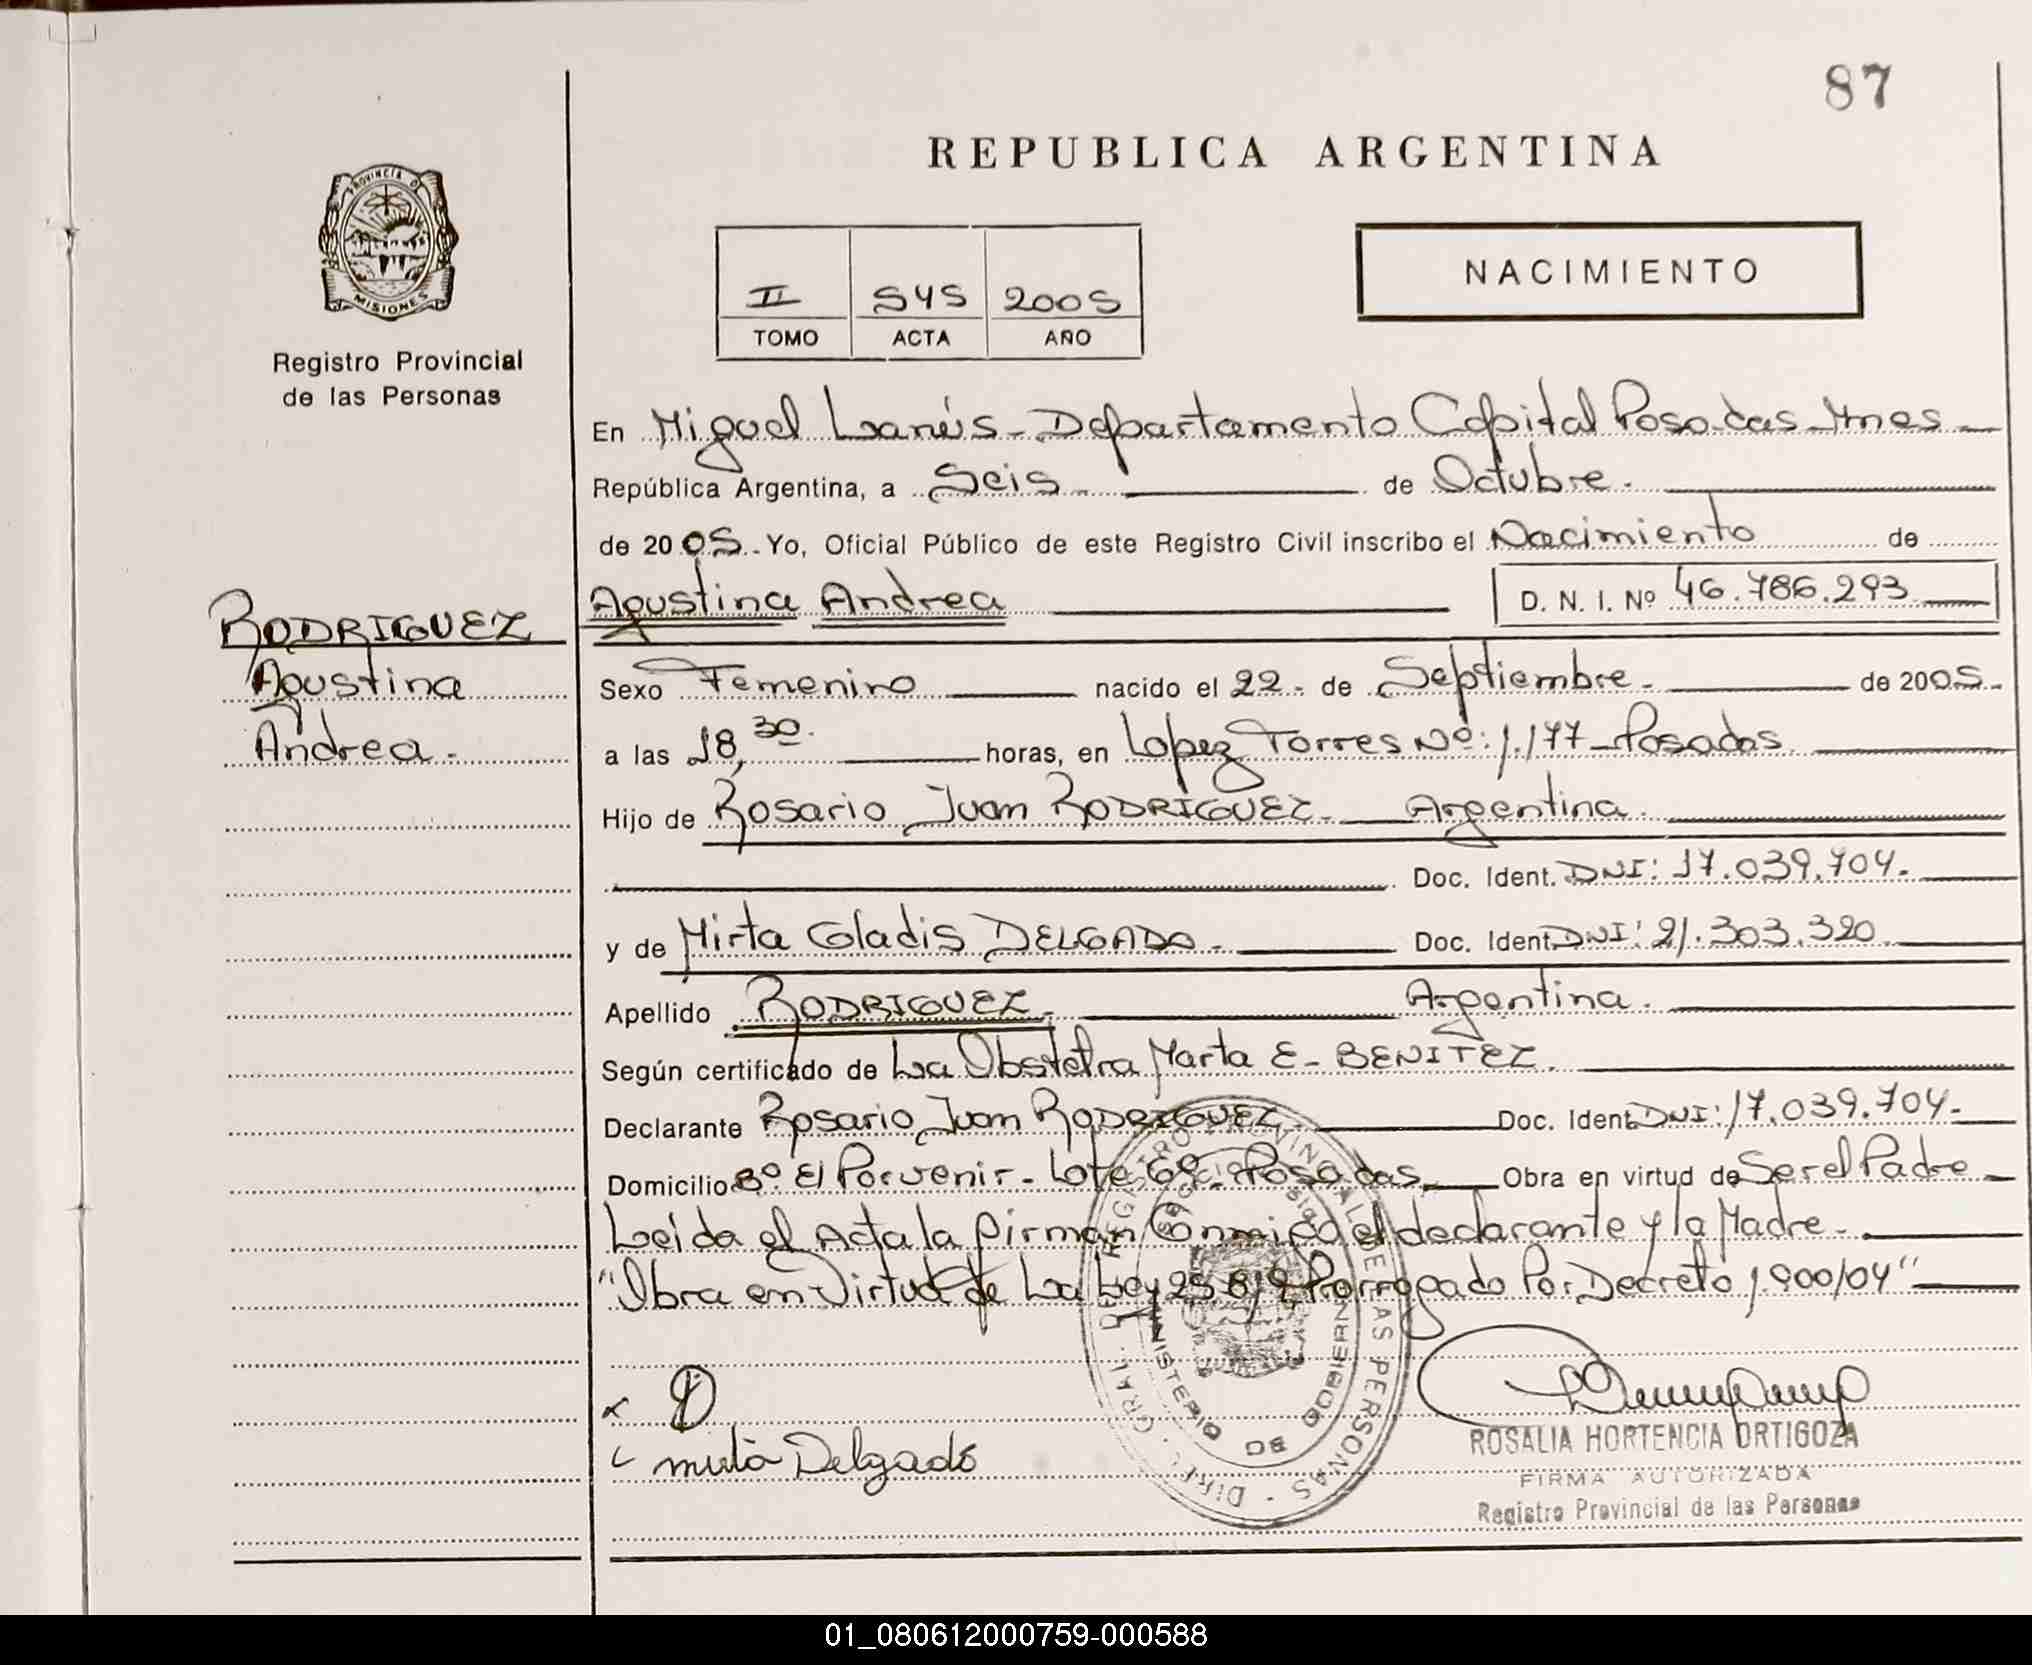 87
REPUBLICA ARGENTINA
PROVINCIA D
MISIONES
Registro Provincial
de las Personas
II 545 2005
TOMO ACTA AÑO
NACIMIENTO
En Miguel Lanús - Departamento Capital Posadas - Mnes
República Argentina, a Seis de Octubre.
de 2005. Yo, Oficial Público de este Registro Civil inscribo el Nacimiento de
Agustina Andrea D. N. I. Nº 46.786.293
RODRIGUEZ
Agustina
Andrea.-
Sexo Femenino nacido el 22 - de Septiembre - de 2005.
a las 18,30. horas, en Lopez Torres Nº: 1.177 - Posadas
Hijo de Rosario Juan RODRIGUEZ - Argentina.
Doc. Ident. DNI: 17.039.704.
y de Mirta Gladis DELGADO - Doc. Ident. DNI: 21.303.320
Apellido RODRIGUEZ. Argentina.
Según certificado de La Obstetra Marta E - BENITEZ.
Declarante Rosario Juan RODRIGUEZ - Doc. Ident. DNI: 17.039.704.
Domicilio Bº El Porvenir - Lote Posadas, Obra en virtud de Ser el Padre
Leida el Acta la firman Conmigo el declarante y la Madre -
"Obra en Virtud de La Ley 25.819 Prorrogado Por Decreto 1.900/04"
x
Mirta Delgado
DIREC. GRAL. DEL REGISTRO PROVINCIAL DE LAS PERSONAS
MINISTERIO DE GOBIERNO
ROSALIA HORTENCIA ORTIGOZA
FIRMA AUTORIZADA
Registro Provincial de las Personas
01_080612000759-000588